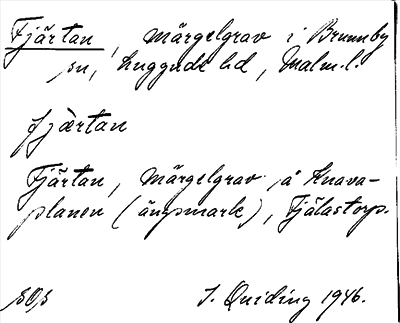 Fjärtan, märgelgrav i Brunnby
sn, Luggude hd, Malm. l.
fjærtan
Fjärtan, märgelgrav på Knava-
planen (ängsmark), Fjälastorp.
J. Quiding 1946.